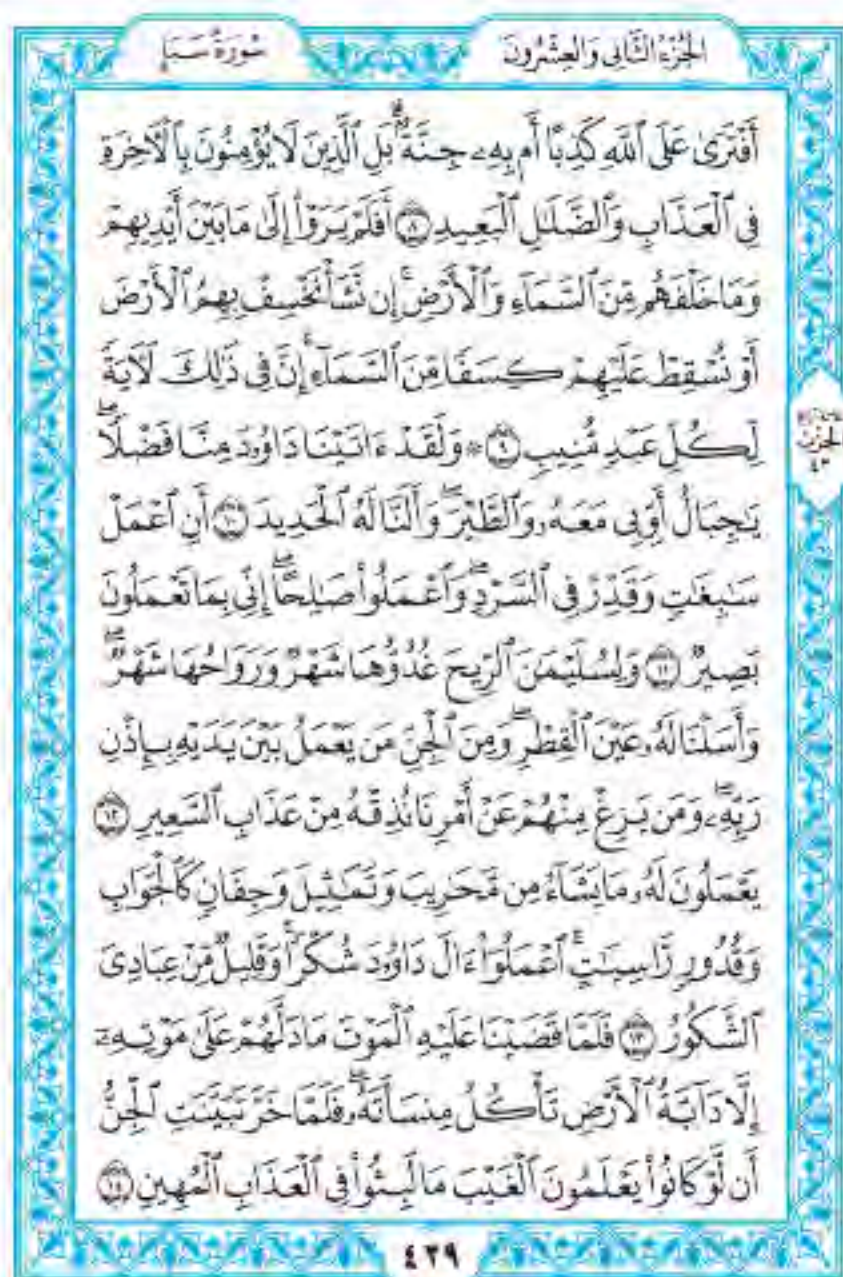 الجُزْءُ الثَّانِي وَالعِشْرُونَ
سُورَةُ سَبَإٍ
أَفْتَرَىٰ عَلَى ٱللَّهِ كَذِبًا أَم بِهِۦ جِنَّةٌۢ ۗ بَلِ ٱلَّذِينَ لَا يُؤْمِنُونَ بِٱلْـَٔاخِرَةِ
فِى ٱلْعَذَابِ وَٱلضَّلَـٰلِ ٱلْبَعِيدِ ٨ أَفَلَمْ يَرَوْا۟ إِلَىٰ مَا بَيْنَ أَيْدِيهِمْ
وَمَا خَلْفَهُم مِّنَ ٱلسَّمَآءِ وَٱلْأَرْضِ ۚ إِن نَّشَأْ نَخْسِفْ بِهِمُ ٱلْأَرْضَ
أَوْ نُسْقِطْ عَلَيْهِمْ كِسَفًا مِّنَ ٱلسَّمَآءِ ۚ إِنَّ فِى ذَٰلِكَ لَـَٔايَةً
لِّكُلِّ عَبْدٍ مُّنِيبٍ ٩ ۞ وَلَقَدْ ءَاتَيْنَا دَاوُۥدَ مِنَّا فَضْلًا ۖ
يَـٰجِبَالُ أَوِّبِى مَعَهُۥ وَٱلطَّيْرَ ۖ وَأَلَنَّا لَهُ ٱلْحَدِيدَ ١٠ أَنِ ٱعْمَلْ
سَـٰبِغَـٰتٍ وَقَدِّرْ فِى ٱلسَّرْدِ ۖ وَٱعْمَلُوا۟ صَـٰلِحًا ۖ إِنِّى بِمَا تَعْمَلُونَ
بَصِيرٌ ١١ وَلِسُلَيْمَـٰنَ ٱلرِّيحَ غُدُوُّهَا شَهْرٌ وَرَوَاحُهَا شَهْرٌ ۖ
وَأَسَلْنَا لَهُۥ عَيْنَ ٱلْقِطْرِ ۖ وَمِنَ ٱلْجِنِّ مَن يَعْمَلُ بَيْنَ يَدَيْهِ بِإِذْنِ
رَبِّهِۦ ۖ وَمَن يَزِغْ مِنْهُمْ عَنْ أَمْرِنَا نُذِقْهُ مِنْ عَذَابِ ٱلسَّعِيرِ ١٢
يَعْمَلُونَ لَهُۥ مَا يَشَآءُ مِن مَّحَـٰرِيبَ وَتَمَـٰثِيلَ وَجِفَانٍ كَٱلْجَوَابِ
وَقُدُورٍ رَّاسِيَـٰتٍ ۚ ٱعْمَلُوٓا۟ ءَالَ دَاوُۥدَ شُكْرًا ۚ وَقَلِيلٌ مِّنْ عِبَادِىَ
ٱلشَّكُورُ ١٣ فَلَمَّا قَضَيْنَا عَلَيْهِ ٱلْمَوْتَ مَا دَلَّهُمْ عَلَىٰ مَوْتِهِۦٓ
إِلَّا دَآبَّةُ ٱلْأَرْضِ تَأْكُلُ مِنسَأَتَهُۥ ۖ فَلَمَّا خَرَّ تَبَيَّنَتِ ٱلْجِنُّ
أَن لَّوْ كَانُوا۟ يَعْلَمُونَ ٱلْغَيْبَ مَا لَبِثُوا۟ فِى ٱلْعَذَابِ ٱلْمُهِينِ ١٤
الحزب
٤٣
٤٢٩